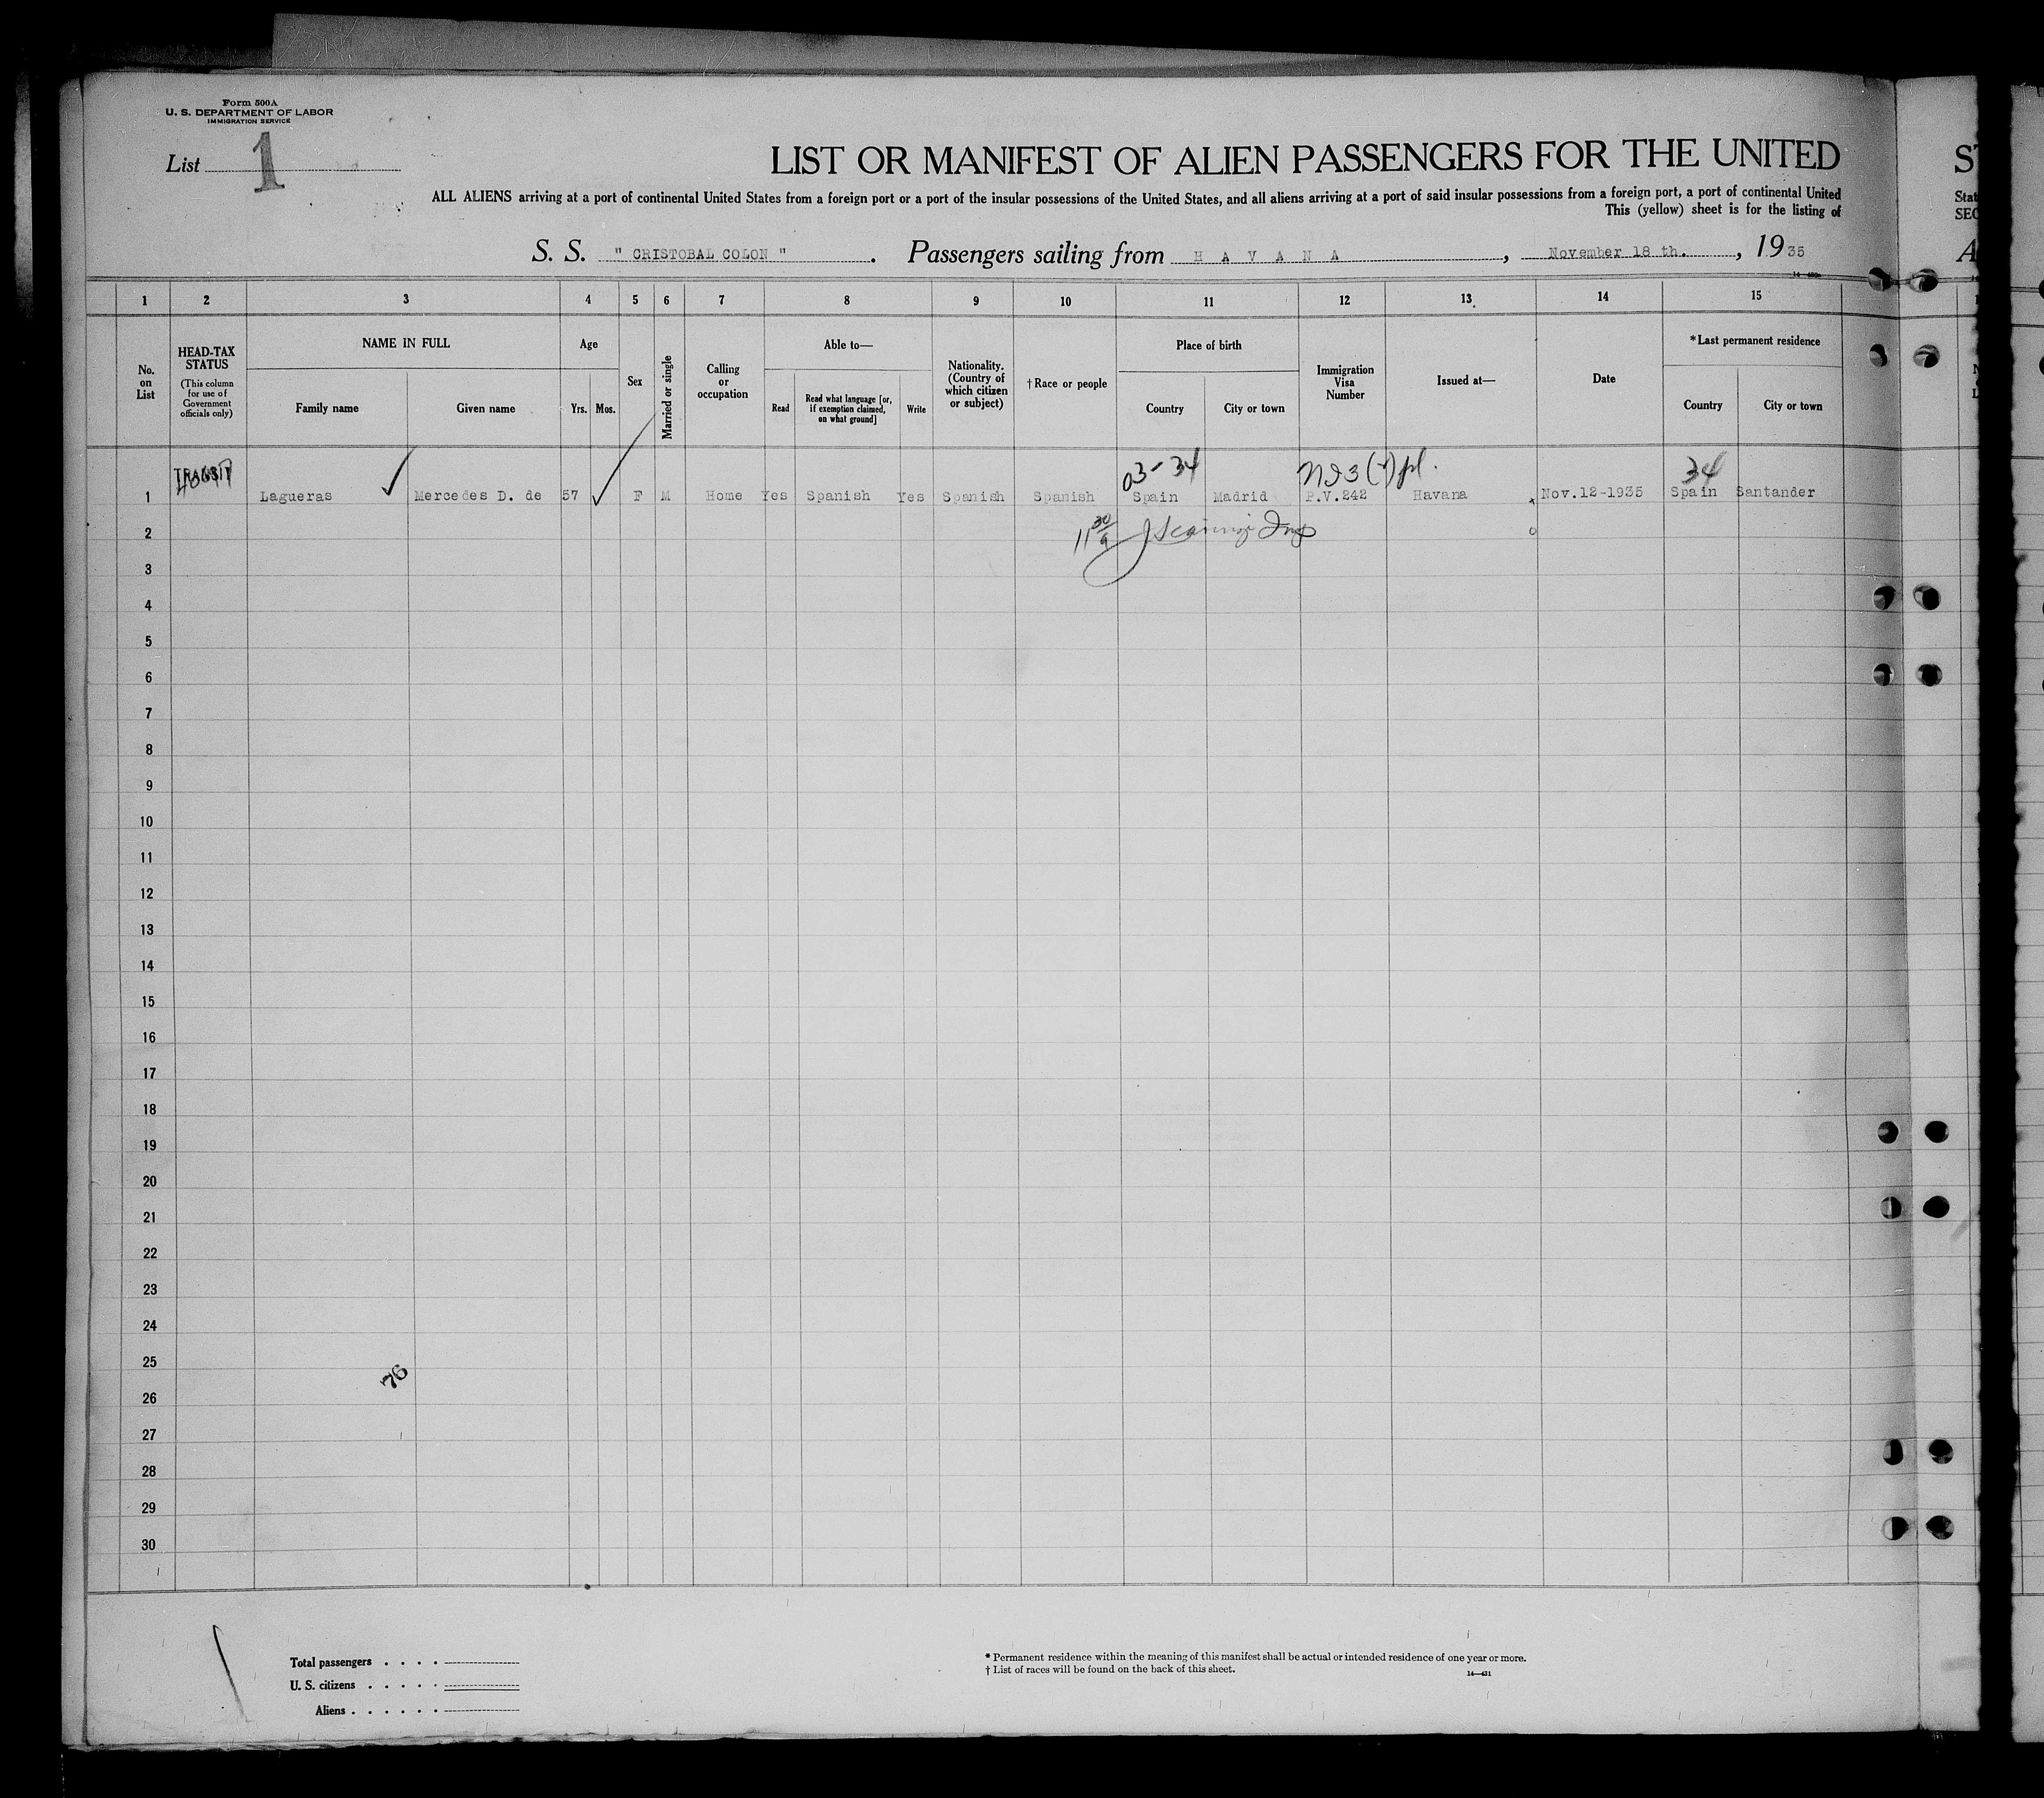 Form 500A
U. S. DEPARTMENT OF LABOR
IMMIGRATION SERVICE
List 1
LIST OR MANIFEST OF ALIEN PASSENGERS FOR THE UNITED
ALL ALIENS arriving at a port of continental United States from a foreign port or a port of the insular possessions of the United States, and all aliens arriving at a port of said insular possessions from a foreign port, a port of continental United
This (yellow) sheet is for the listing of
S. S. " CRISTOBAL COLON " . Passengers sailing from H A V A N A , November 18 th. , 1935
1 2 3 4 5 6 7 8 9 10 11 12 13 14 15
No. on List
HEAD-TAX STATUS
(This column for use of Government officials only)
NAME IN FULL
Family name
Given name
Age
Yrs.
Mos.
Sex
Married or single
Calling or occupation
Able to—
Read
Read what language [or, if exemption claimed, on what ground]
Write
Nationality. (Country of which citizen or subject)
† Race or people
Place of birth
Country
City or town
Immigration Visa Number
Issued at—
Date
*Last permanent residence
Country
City or town
TRANSIT
03-34
34
1 Lagueras Mercedes D. de 57 F M Home Yes Spanish Yes Spanish Spanish Spain Madrid P.V.242 Havana Nov.12-1935 Spain Santander
2
3
4
5
6
7
8
9
10
11
12
13
14
15
16
17
18
19
20
21
22
23
24
25
76
26
27
28
29
30
Total passengers
U. S. citizens
Aliens
* Permanent residence within the meaning of this manifest shall be actual or intended residence of one year or more.
† List of races will be found on the back of this sheet.
14—431